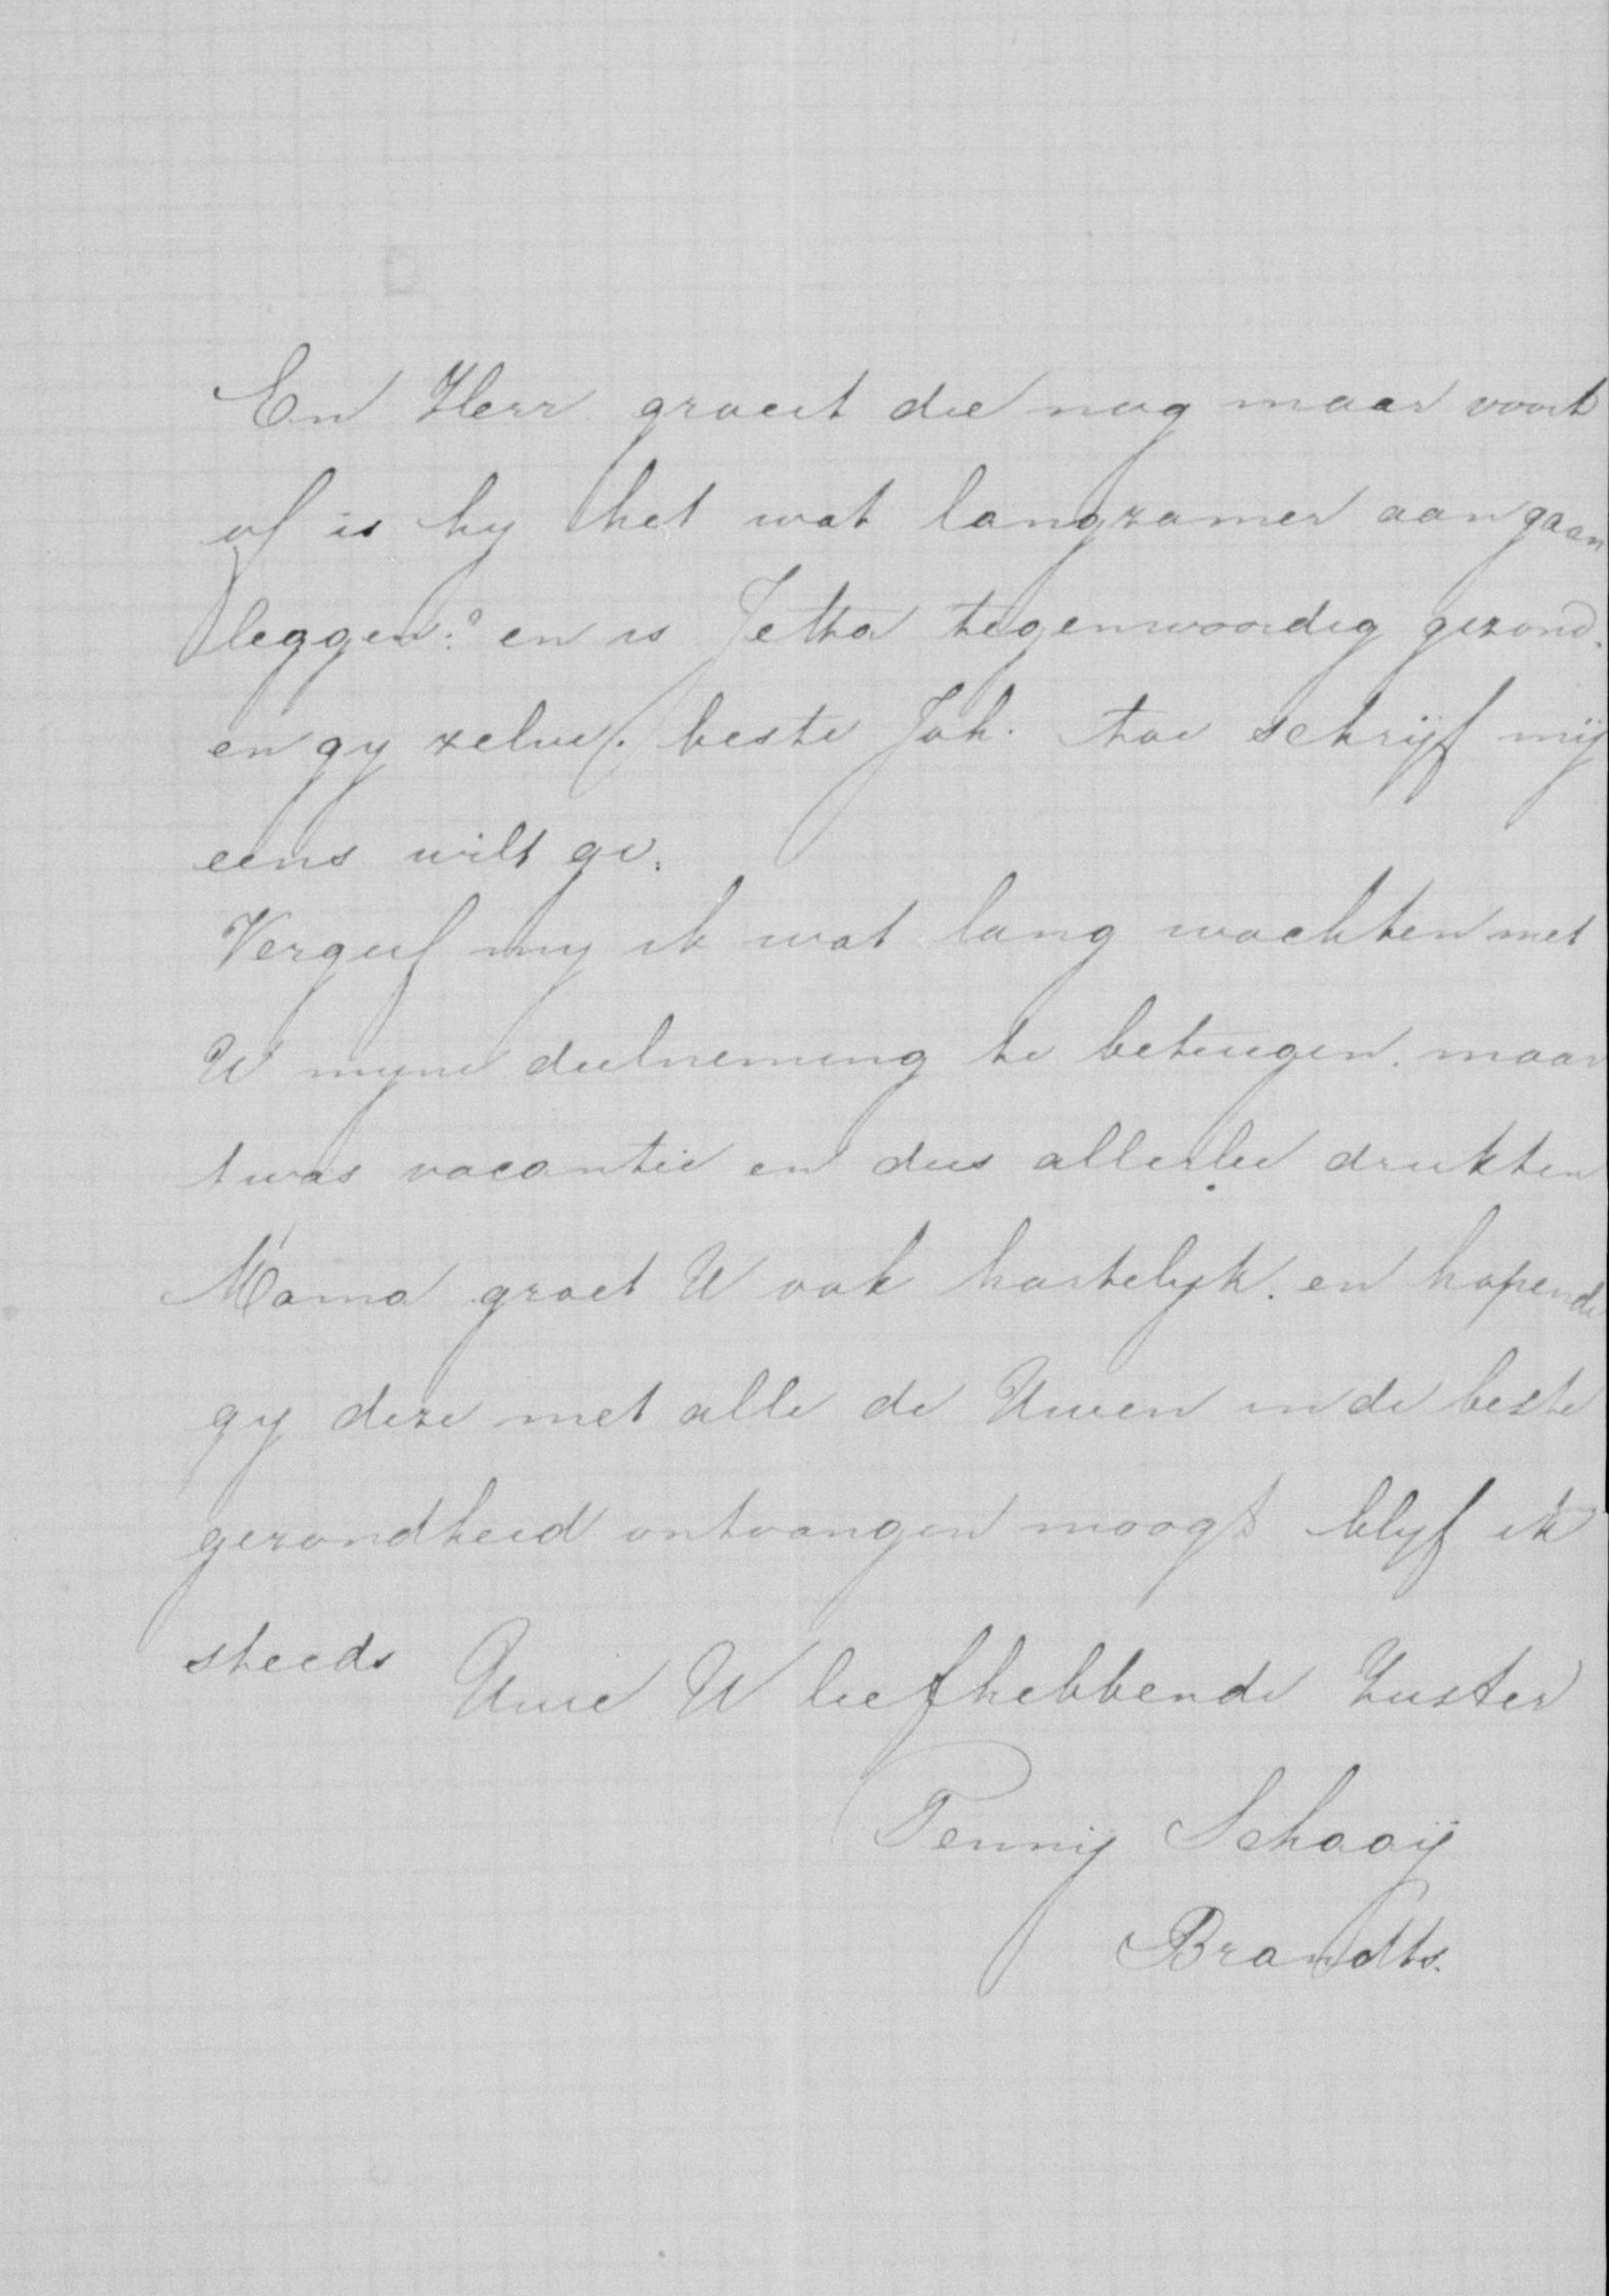 En Herr groeit die nog maar voort
of is hy het wat langzamer aan gaan
leggen? en is Jetha tegenwoordig gezond.
en gy zelve. beste Joh. toe schrijf mij
eens wilt ge.
Vergeef my ik wat lang wachtten met
U myne deelneming te betuigen. maar
t was vacantie en dus allerlei drukten
Mama groet U ook hartelyk. en hopende
gy deze met alle de Uwen in de beste
gezondheid ontvangen moogt blyf ik
steeds Uwe U liefhebbende Zuster
Pennij Schaaij
Brandts.